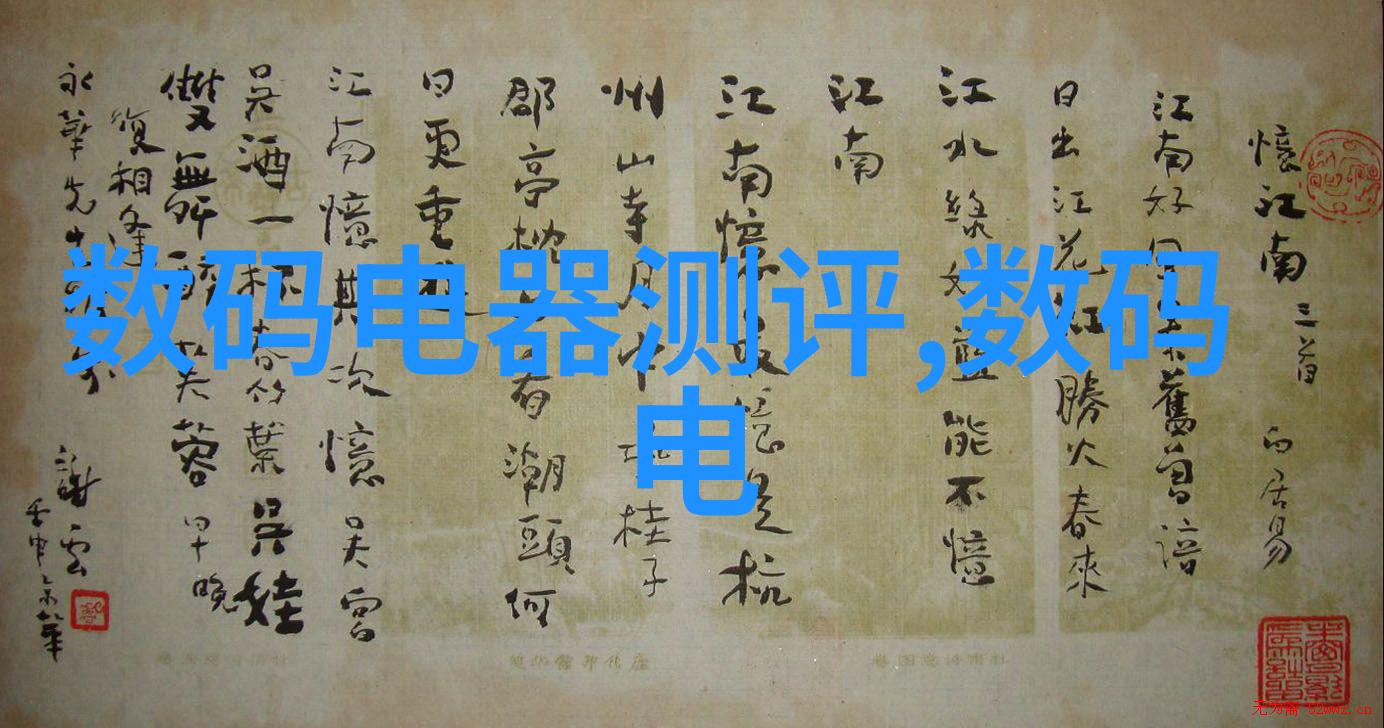 数码电器测评,数码
电
憶江南 三首 白居易
江南好 舊曾諳
日出江花紅勝火春來
江水綠如藍能不憶
江南
江南憶最憶是杭
州山寺月中 桂子
郡亭枕上看潮頭何
日更重
江南憶其次憶吳宮
吳酒一杯春竹葉吳娃
雙舞 芙蓉早晚
復相逢
永華先生
謝雲
无为斋 52wwz.cn